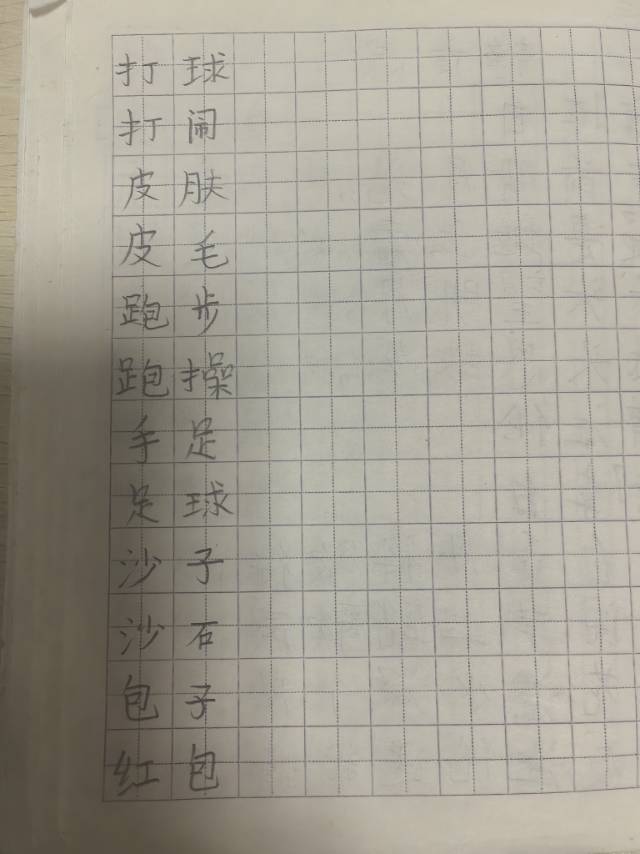 打球
打闹
皮肤
皮毛
跑步
跑操
手足
足球
沙子
沙石
包子
红包